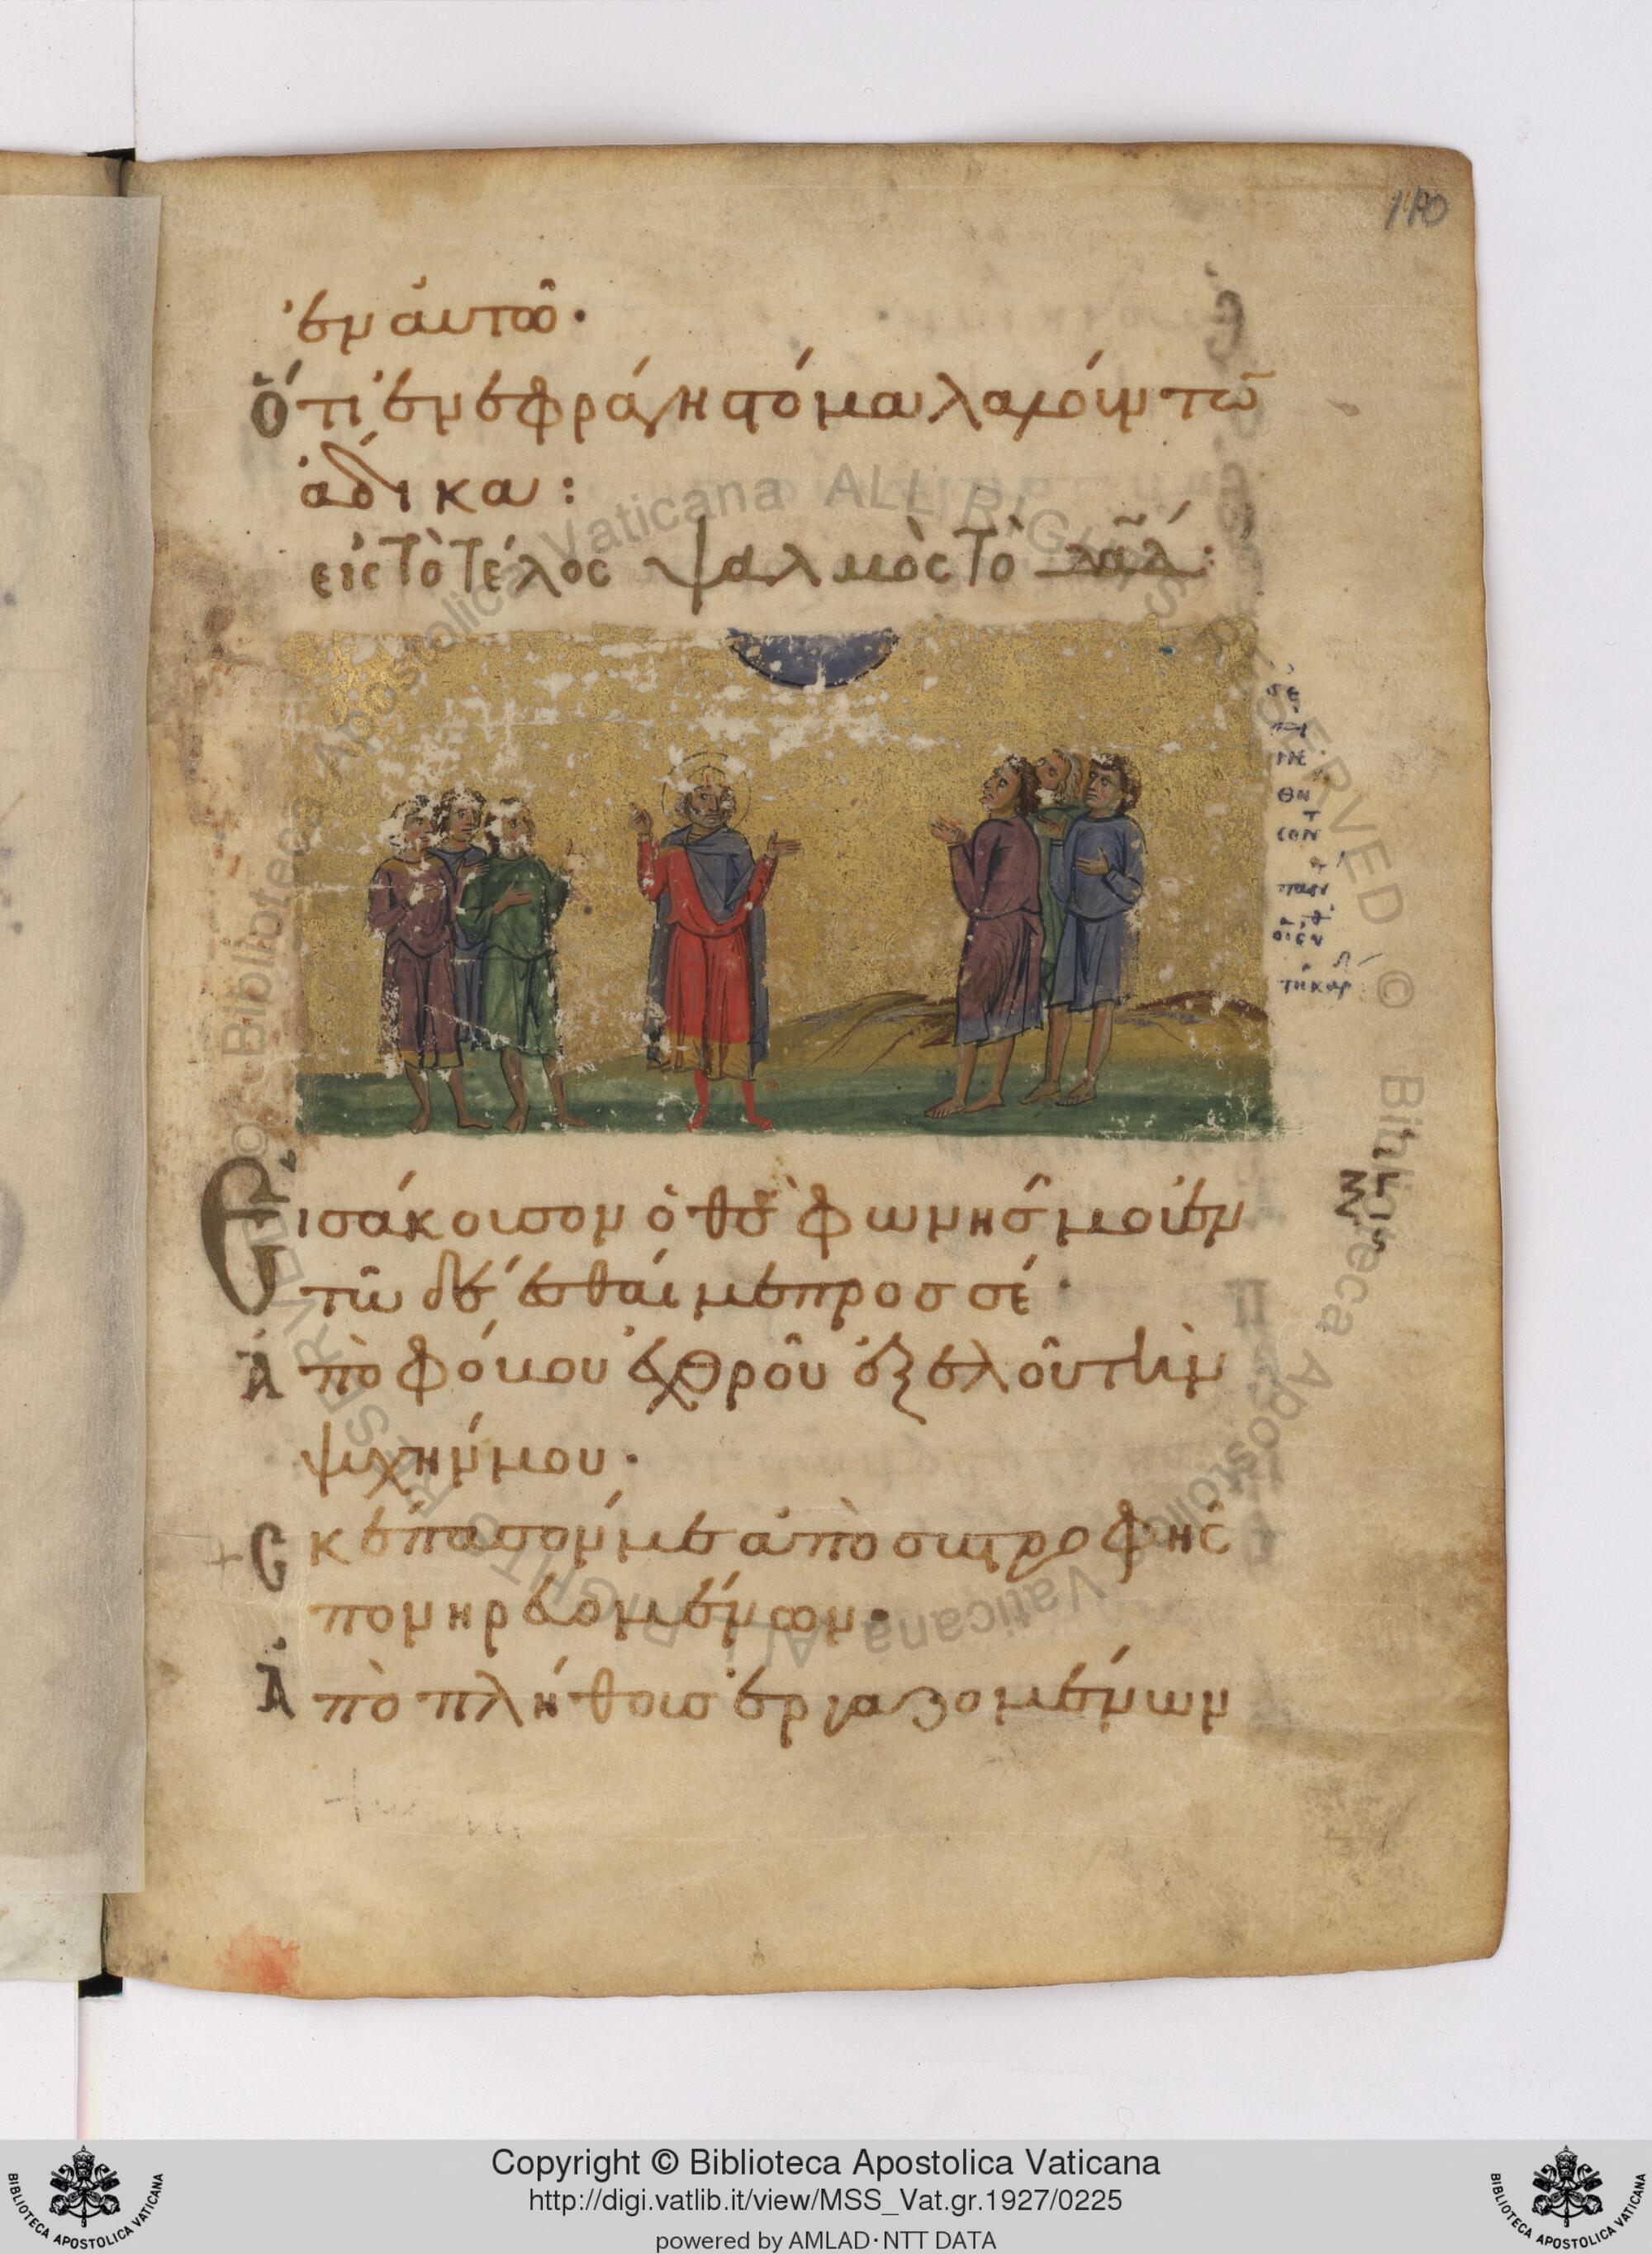 110
ἐν αὐτῶ·
Ὅτι ἐνεφράγη στόμα λαλούντῶ
ἄδικα:
εἰς τὸ τέλος ψαλμὸς τὸ δᾶδ:
Εἰσάκουσον ὁ θς φωνῆς μου ἐν
τῶ δέεσθαί με προς σέ·
Ἀπὸ φόβου ἐχθροῦ ἐξελοῦ τὴν
ψυχήν μου·
Cκέπασόν με ἀπὸ συστροφῆς
πονηρευομένων·
Ἀπὸ πλήθους ἐργαζομένων
© Biblioteca Apostolica Vaticana ALL RIGHTS RESERVED
© Biblioteca Apostolica Vaticana ALL RIGHTS RESERVED
BIBLIOTECA APOSTOLICA VATICANA
Copyright © Biblioteca Apostolica Vaticana
http://digi.vatlib.it/view/MSS_Vat.gr.1927/0225
powered by AMLAD·NTT DATA
BIBLIOTECA APOSTOLICA VATICANA